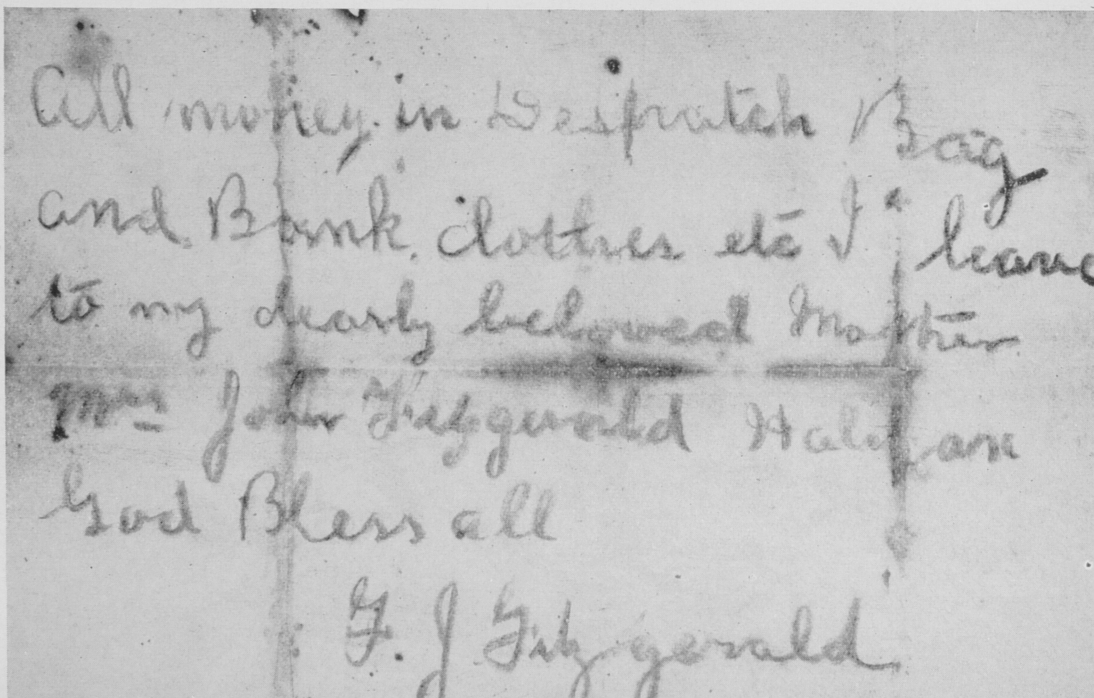 All money in Despatch Bag
and Bank, clothes etc I leave
to my dearly beloved Mother
Mrs John Fitzgerald Halifax
God Bless all
F. J Fitzgerald